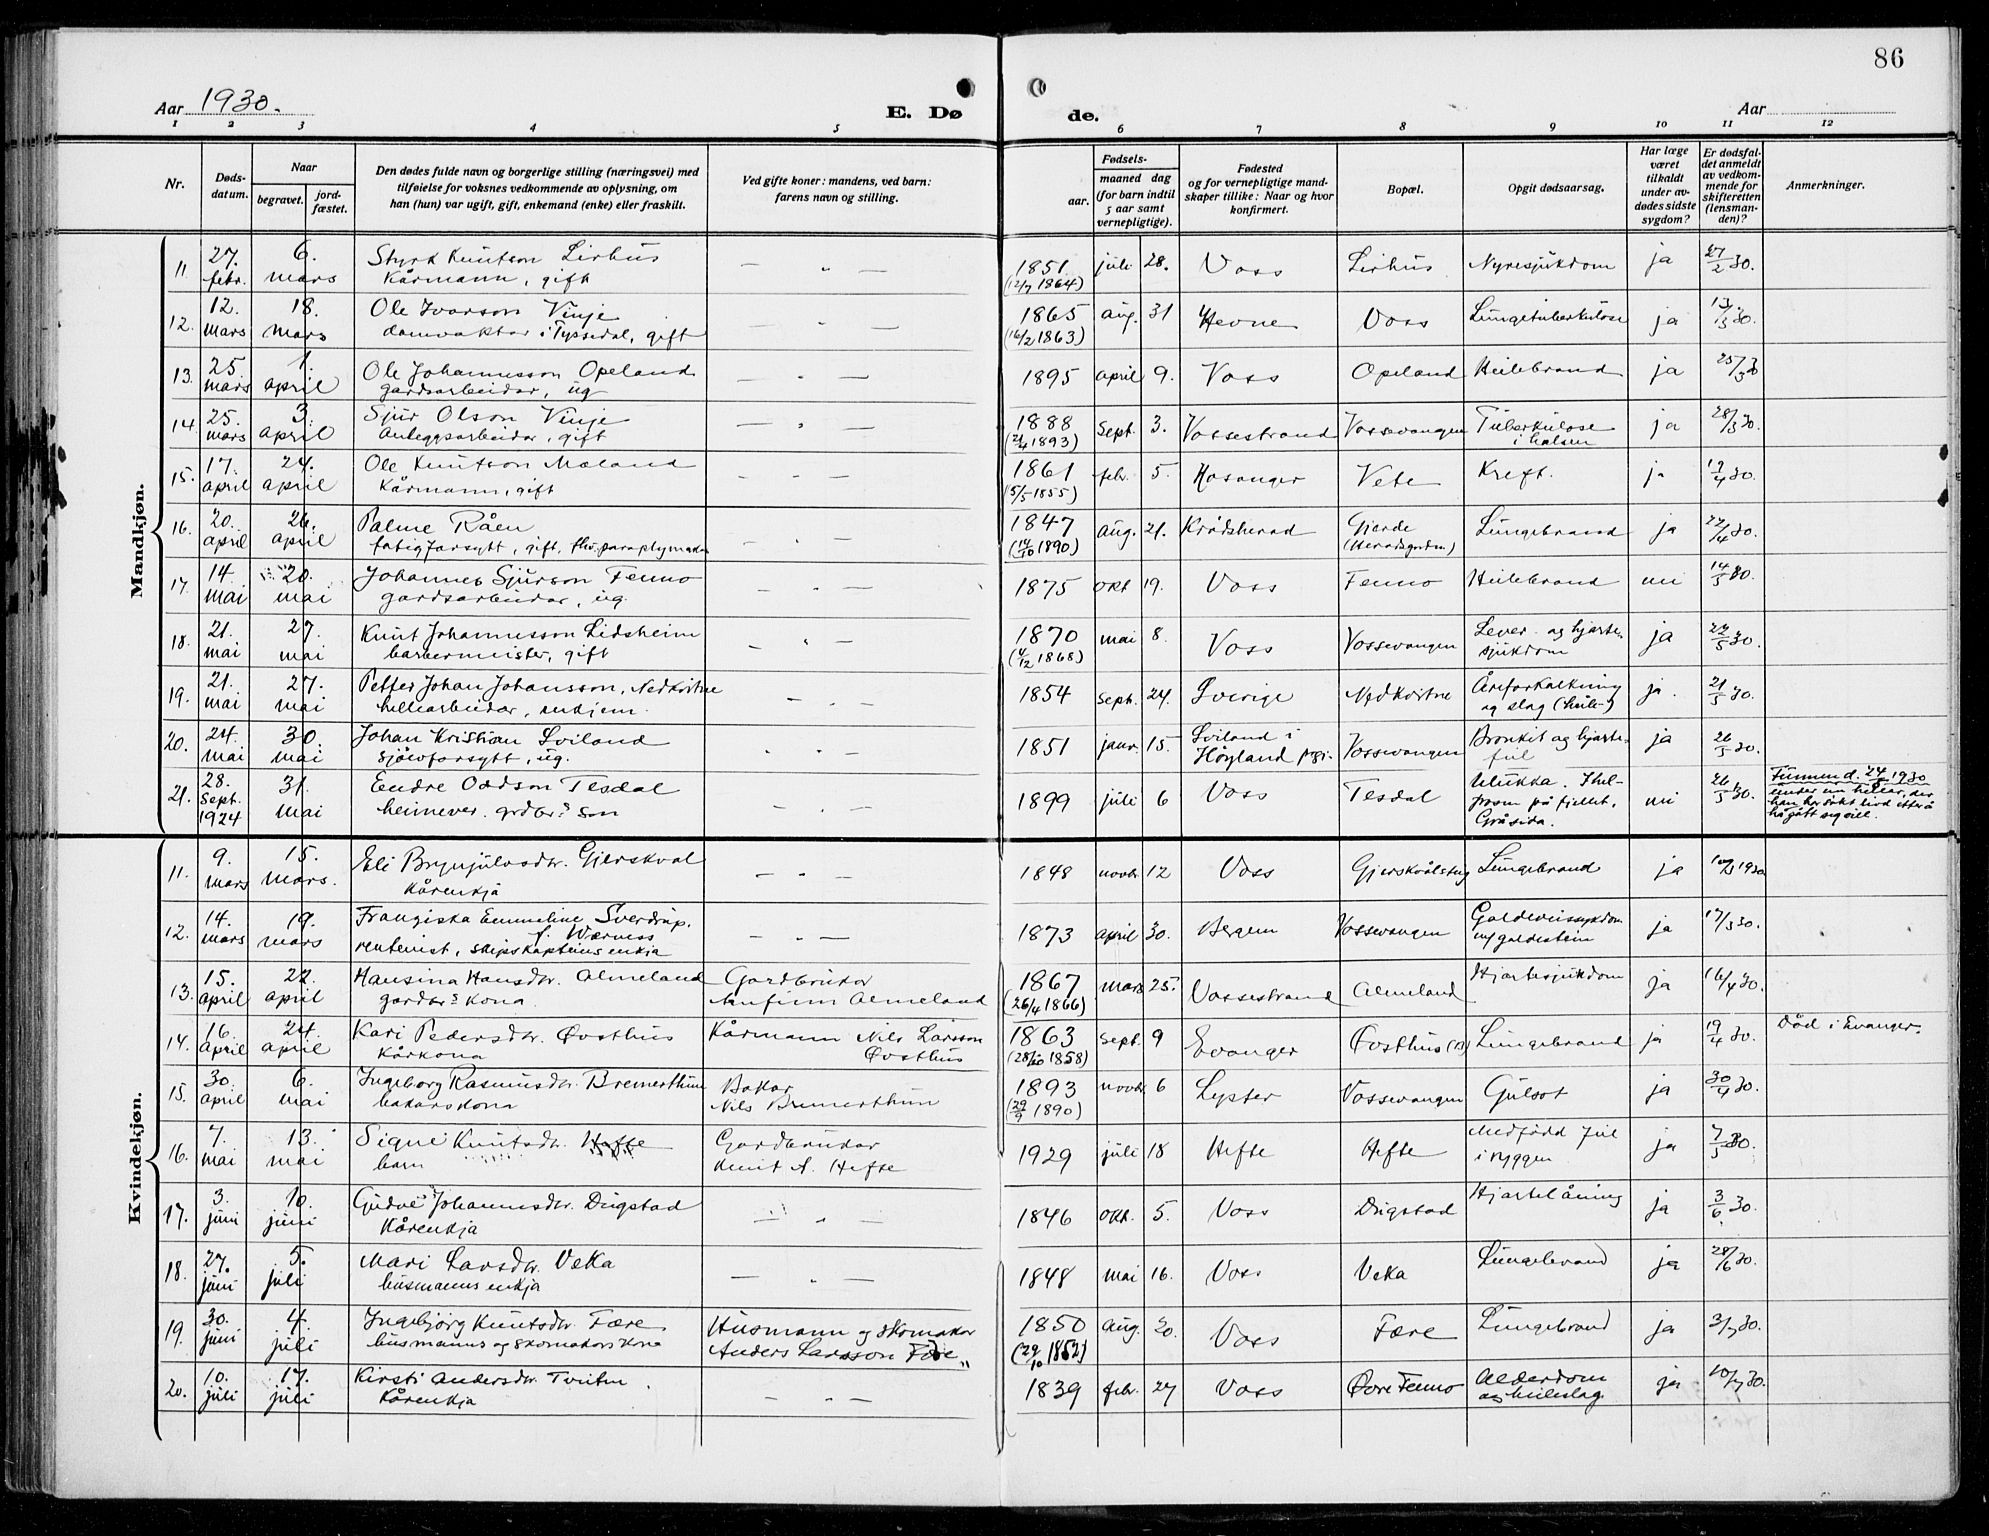 86
Aar 1930.
E. Dø
de.
Aar
1 2 3 4 5 6 7 8 9 10 11 12
Nr.
Døds-
datum.
Naar
begravet.
jord-
fæstet.
Den dødes fulde navn og borgerlige stilling (næringsvei) med
tilføielse for voksnes vedkommende av oplysning, om
han (hun) var ugift, gift, enkemand (enke) eller fraskilt.
Ved gifte koner: mandens, ved barn:
farens navn og stilling.
Fødsels-
aar.
maaned dag
(for barn indtil
5 aar samt
vernepligtige).
Fødested
og for vernepligtige mand-
skaper tillike: Naar og hvor
konfirmert.
Bopæl.
Opgit dødsaarsag.
Har læge
været
tilkaldt
under av-
dødes sidste
sygdom?
Er dødsfal-
det anmeldt
av vedkom-
mende for
skifteretten
(lensman-
den)?
Anmerkninger.
Mandkjøn.
11. 27. febr. 6. mars Styrk Knutson Lirhus — " — 1851 juli 28. Voss Lirhus Nyresjukdom ja 27/2 30.
Kårmann, gift (12/7 1864)
12. 12. mars 18. mars Ole Ivarson Vinje — " — 1865 aug. 31 Hevne Voss Lungetuberkulose ja 13/3 30.
damvaktar i Tyssedal, gift (16/2 1863)
13. 25. mars 1. april Ole Johannesson Opeland — " — 1895 april 9. Voss Opeland Heilebrand ja 25/3 30
gardsarbeidar, ug
14. 25. mars 3. april Sjur Olson Vinje — " — 1888 Sept. 3. Vossestrand Vossevangen Tuberkulose ja 28/3 30.
Anleggsarbeidar, gift 1893) i halsen
15. 17. april 24. april Ole Knutson Mæland — " — 1861 febr. 5. Hosanger Vete Kreft. ja 19/4 30.
Kårmann, gift (5/5 1855)
16. 20. april 26. april Palme Råen — " — 1847 Aug. 21. Krødsherad Gjerde Lungebrand ja 22/4 30.
fatigforsytt, gift, fhv. paraplymakar (14/10 1890) (Heradsgarden)
17. 14. mai 20. mai Johannes Sjurson Fenno — " — 1875 okt 19. Voss Fenno Heilebrand nei 14/5 30.
gardsarbeidar, ug.
18. 21. mai 27. mai Knut Johannesson Lidsheim — " — 1870 mai 8. Voss Vossevangen Lever- og hjarte- ja 22/5 30.
barbermeister, gift (4/12 1868) sjukdom
19. 21. mai 27. mai Petter Johan Johansson, Nedkvitne — " — 1854 Sept. 24. Sverige Nedkvitne Åreforkalkning ja. 21/5 30.
hellearbeidar, enkjem. og slag (heile-)
20. 24. mai 30. mai Johan Kristian Sviland " " — 1851 janr. 15. Sviland i Vossevangen Bronkit og hjarte- ja 26/5 30.
sjølvforsytt, ug. Høyland pgj. feil
21. 28. Sept. 1924 31. mai Eendre Oddson Tesdal — " — 1899 juli 6 Voss Tesdal Ulukka. Ihel- nei 26/5 30. Funnen d. 24/5 1930
heimever. grdbr.s son frosen på fjellet, under ein hellar, der
Gråsida. han har søkt livd etter å
ha gått seg vill.
Kvindekjøn.
11. 9. mars 15. mars. Eli Brynjulvsdtr. Gjerskvål — " — 1848 novbr. 12 Voss Gjerskvålstug Lungebrand ja 10/3 1930
Kårenkja
12. 14. mars 19. mars Frangiska Emmeline Sverdrup, — " — 1873 april 30. Bergen Vossevangen Galdeveissykdom ja 17/3 30.
f. Wærness m/ galdestein
rentenist, skipskapteins enkja
13. 15. april 22. april Hansina Hansdtr. Almeland Gardbrukar 1867 mars 25. Vossestrand Almeland Hjartesjukdom ja 16/4 30.
gardbr.s kona Anfinn Almeland (26/4 1866)
14. 16. april 24. april Kari Pedersdtr. Øvsthus Kårmann Nils Larsson 1863 Sept. 9 Evanger Øvsthus Lungebrand ja 19/4 30. Død i Evanger.
Kårkona Øvsthus (28/10 1858)
15. 30. april 6. mai Ingeborg Rasmusdtr. Bremerthun Bakar 1893 novbr 6 Lyster Vossevangen Gulsot ja 30/4 30.
bakars kona Nils Bremerthun (29/9 1890)
16. 7. mai 13. mai Signe Knutsdtr. Hefte Gardbrukar 1929 juli 18 Hefte Hefte Medfødd feil ja 7/5 30.
barn Knut A. Hefte i ryggen
17. 3. juni 10. juni Gudve Johannesdtr. Dugstad — " — 1846 okt. 5. Voss Dugstad Hjartelåming ja 3/6 30.
Kårenkja
18. 27. juni 5. juli Mari Larsdtr. Veka — " — 1848 mai 16. Voss Veka Lungebrand ja 28/6 30.
husmanns enkja
19. 30. juni 4. juli Ingebjørg Knutsdtr. Fære Husmann og skomakar 1850 Aug. 20. Voss Fære Lungebrand ja 3/7 30.
husmanns og skomakars kona Anders Larsson Fære (29/10 1852)
20. 10. juli 17. juli Kirsti Andersdtr. Tveiten — " — 1839 febr. 27 Voss Øvre Fenno Alderdom ja 10/7 30.
Kårenkja og heileslag